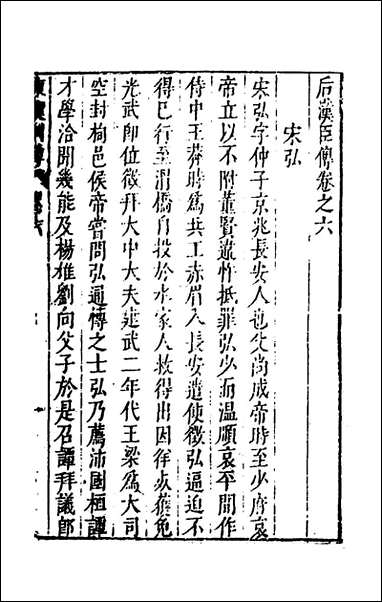 后漢臣傳卷之六
宋弘
宋弘字仲子京兆長安人也父尚成帝時至少府哀
帝立以不附董賢違忤抵罪弘少而温順哀平間作
侍中王莽時爲共工赤眉入長安遣使徵弘逼迫不
得已行至渭橋自投於水家人救得出因佯死獲免
光武即位徵拜大中大夫建武二年代王梁爲大司
空封栒邑侯帝嘗問弘通博之士弘乃薦沛國桓譚
才學洽聞幾能及楊雄劉向父子於是召譚拜議郎